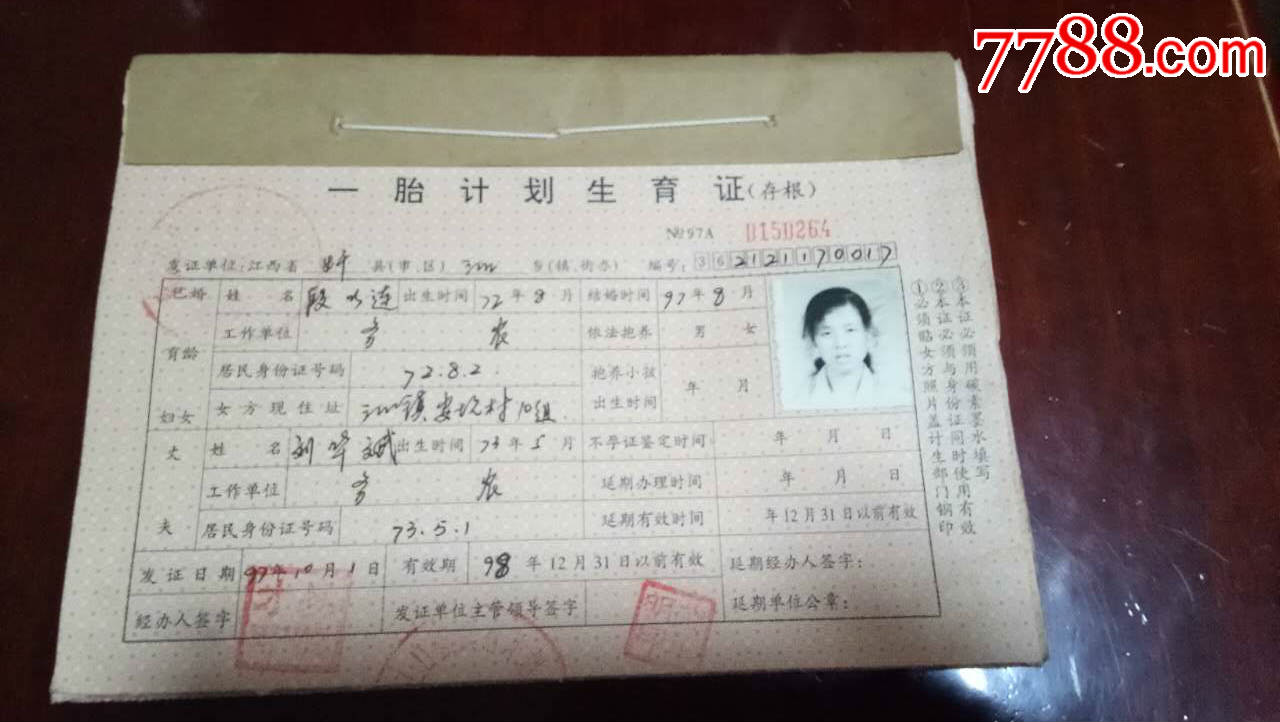 7788.com
一胎计划生育证(存根)
№97A 0150264
发证单位:江西省 县(市、区) 乡(镇、街办) 编号: 3621211170017
已婚育龄妇女 姓名 段 连 出生时间 72年8月 结婚时间 97年8月
工作单位 务农 依法抱养 男 女
居民身份证号码 72.8.2 抱养小孩出生时间 年 月
女方现住址 镇 村10组
丈夫 姓名 刘华斌 出生时间 73年5月 不孕证鉴定时间 年 月 日
工作单位 务农 延期办理时间 年 月 日
居民身份证号码 73.5.1 延期有效时间 年12月31日以前有效
发证日期 97年10月1日 有效期 98年12月31日以前有效 延期经办人签字:
经办人签字 发证单位主管领导签字 延期单位公章:
①必须贴女方照片盖计生部门钢印
②本证必须与身份证同时使用有效
③本证必须用碳素墨水填写